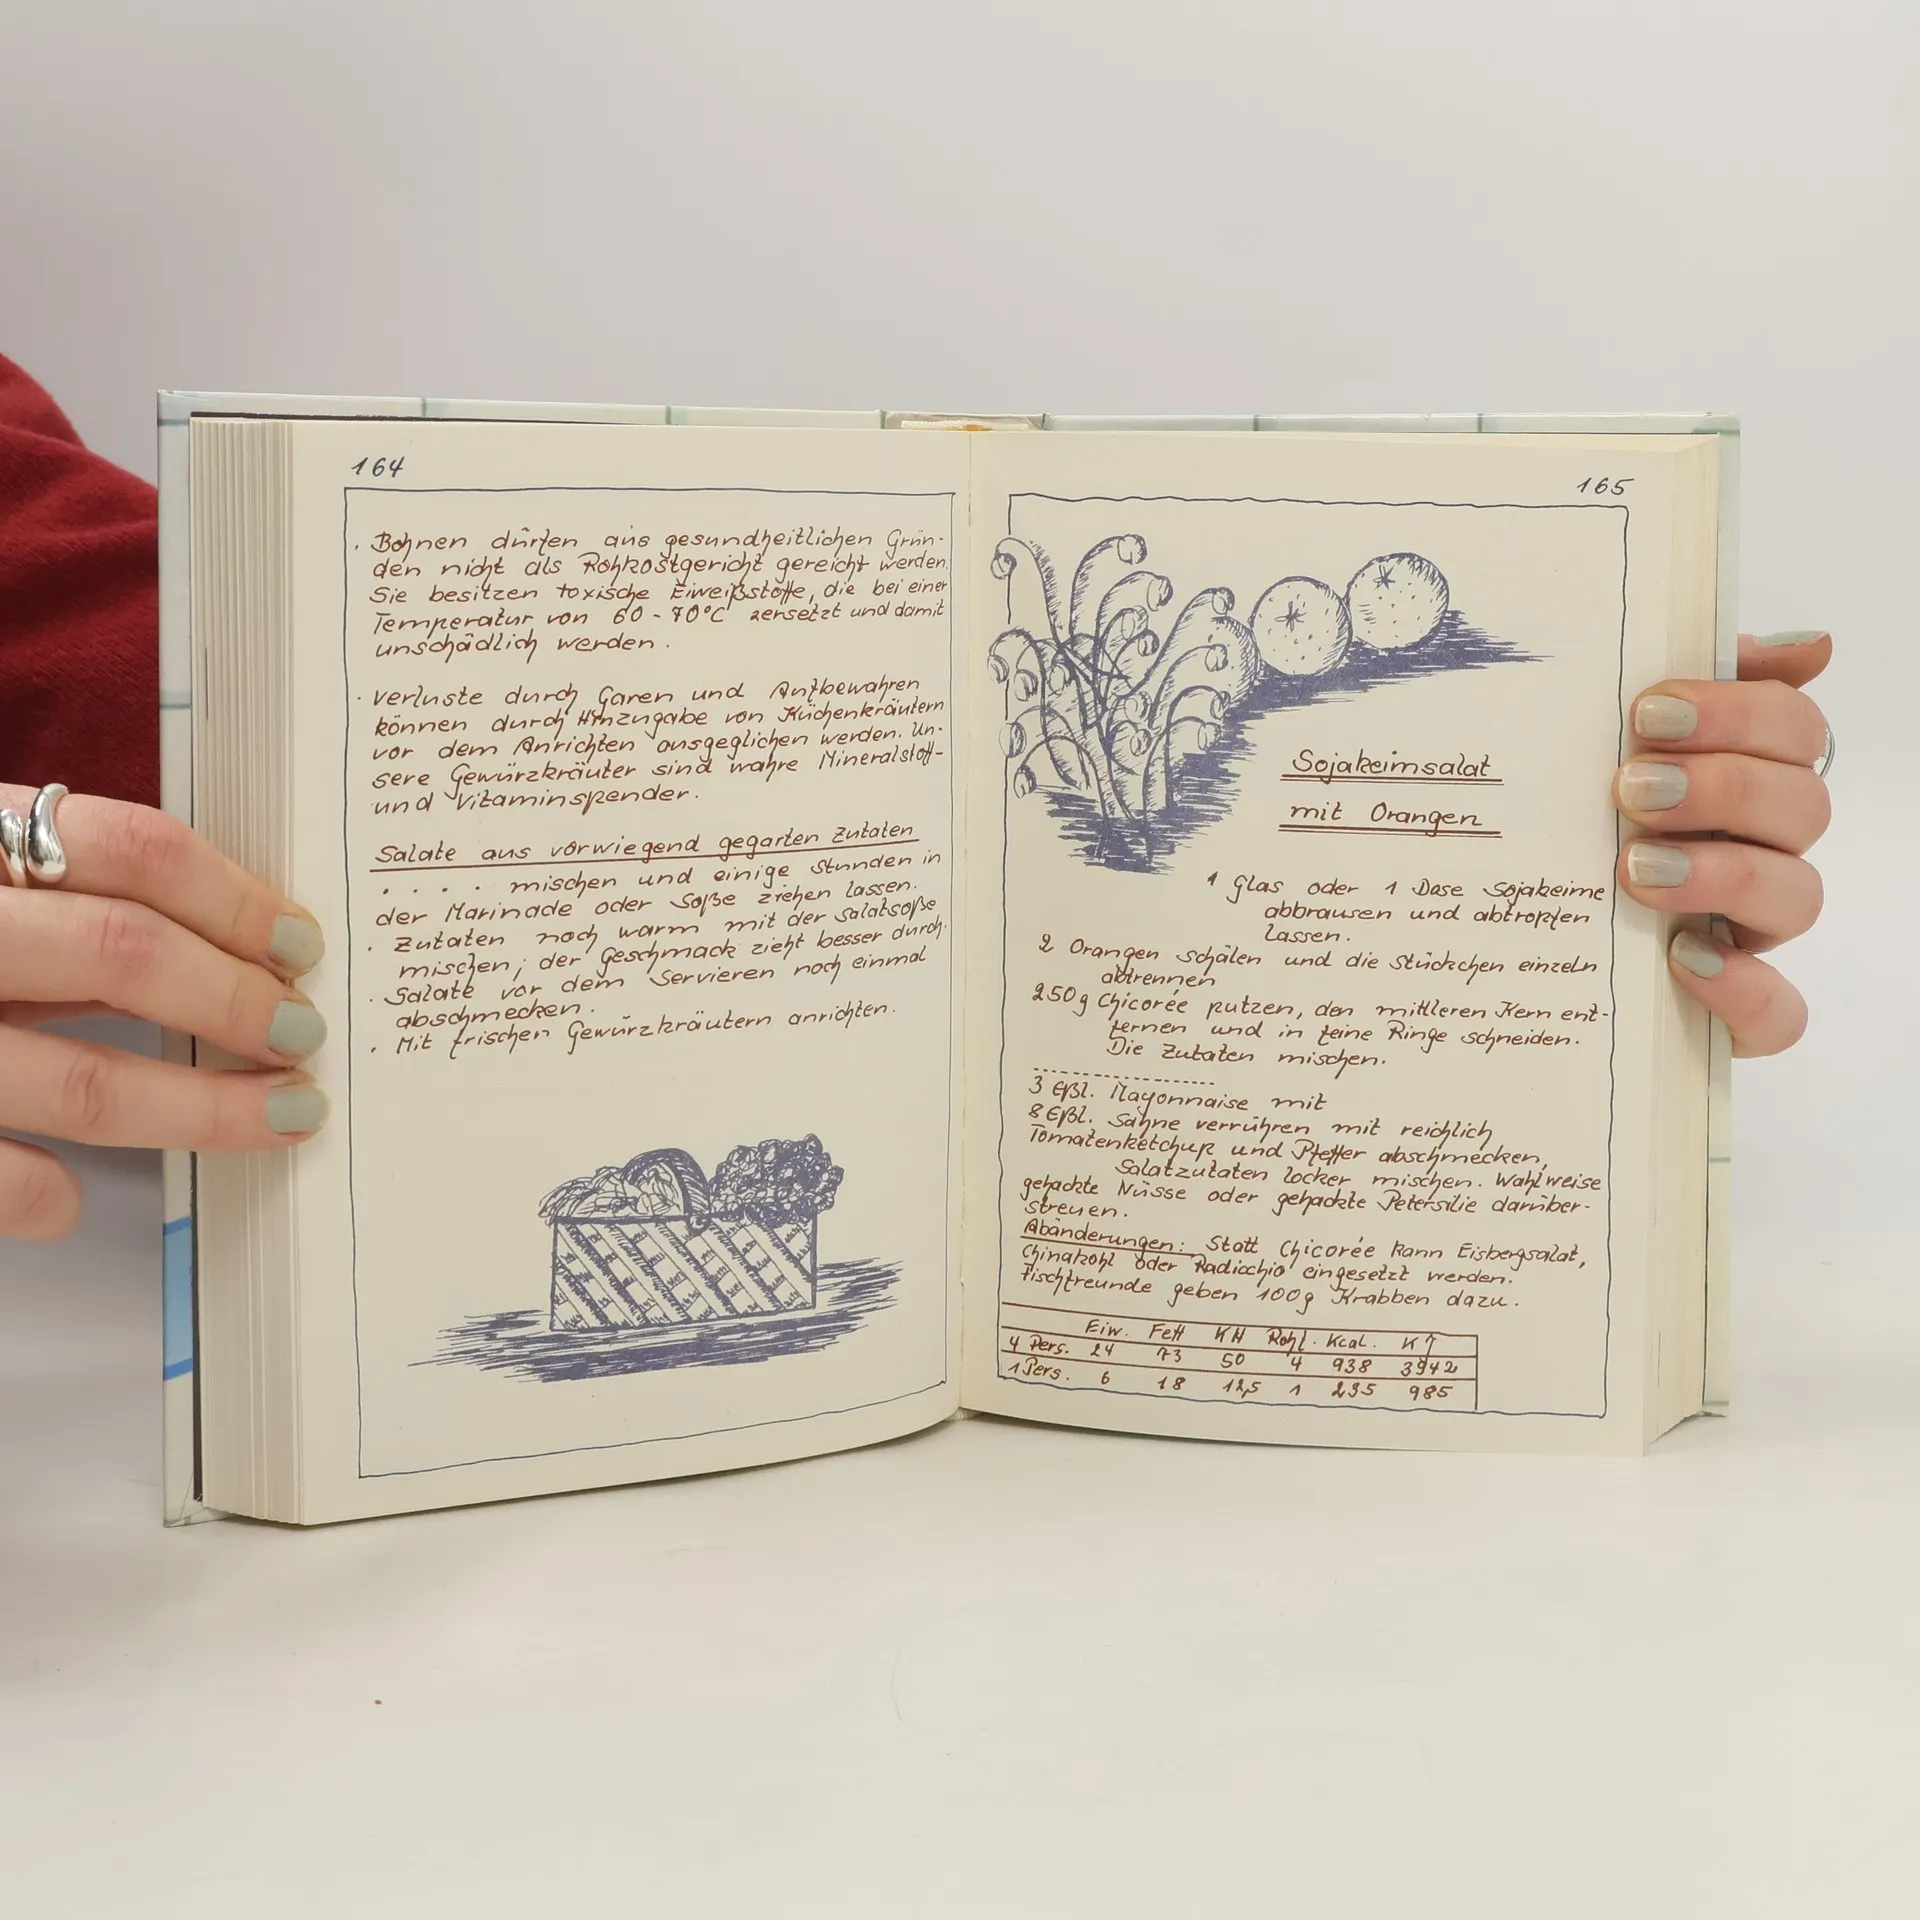 164
. Bohnen dürfen aus gesundheitlichen Grün-
den nicht als Rohkostgericht gereicht werden.
Sie besitzen toxische Eiweißstoffe, die bei einer
Temperatur von 60 - 70°C zersetzt und damit
unschädlich werden.
. Verluste durch Garen und Aufbewahren
können durch Hinzugabe von Küchenkräutern
vor dem Anrichten ausgeglichen werden. Un-
sere Gewürzkräuter sind wahre Mineralstoff-
und Vitaminspender.
Salate aus vorwiegend gegarten Zutaten
. . . . mischen und einige Stunden in
der Marinade oder Soße ziehen lassen.
. Zutaten noch warm mit der Salatsoße
mischen; der Geschmack zieht besser durch.
. Salate vor dem Servieren noch einmal
abschmecken.
. Mit frischen Gewürzkräutern anrichten.
165
Sojakeimsalat
mit Orangen
1 Glas oder 1 Dose Sojakeime
abbrausen und abtropfen
lassen.
2 Orangen schälen und die Stückchen einzeln
abtrennen
250g Chicorée putzen, den mittleren Kern ent-
fernen und in feine Ringe schneiden.
Die Zutaten mischen.
3 Eßl. Mayonnaise mit
8 Eßl. Sahne verrühren mit reichlich
Tomatenketchup und Pfeffer abschmecken,
Salatzutaten locker mischen. Wahlweise
gehackte Nüsse oder gehackte Petersilie darüber-
streuen.
Abänderungen: Statt Chicorée kann Eisbergsalat,
Chinakohl oder Radicchio eingesetzt werden.
Fischfreunde geben 100g Krabben dazu.
Eiw. Fett KH Rohf. Kcal. KJ
4 Pers. 24 73 50 4 938 3942
1 Pers. 6 18 12,5 1 235 985